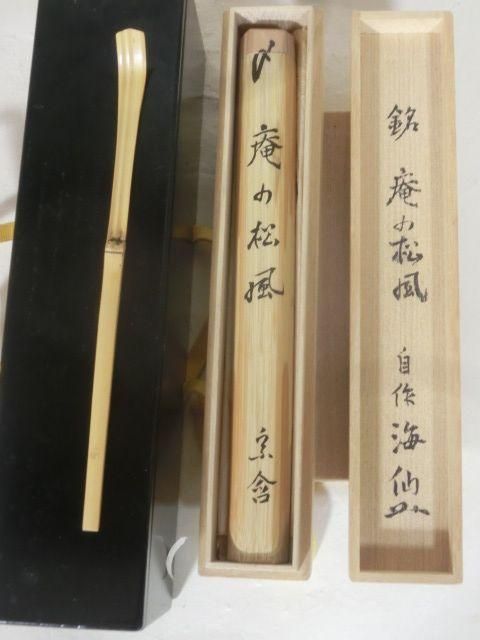 銘 庵の松風 自作 海仙
〆 庵の松風